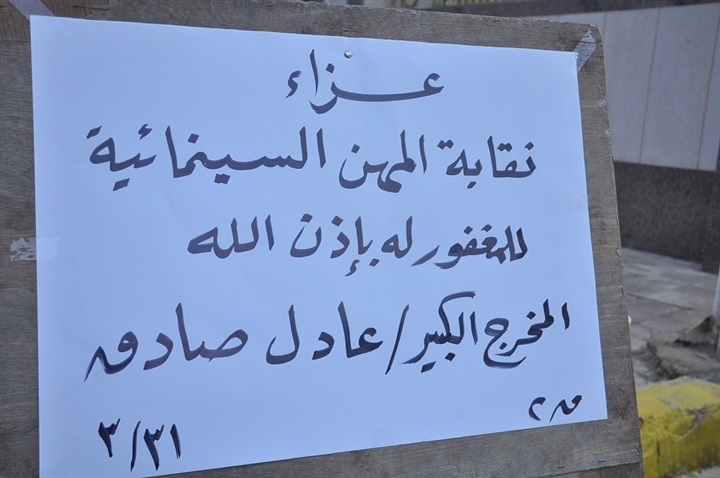 عزاء
نقابة المهن السينمائية
للمغفور له بإذن الله
المخرج الكبير / عادل صادق
٣/٣١